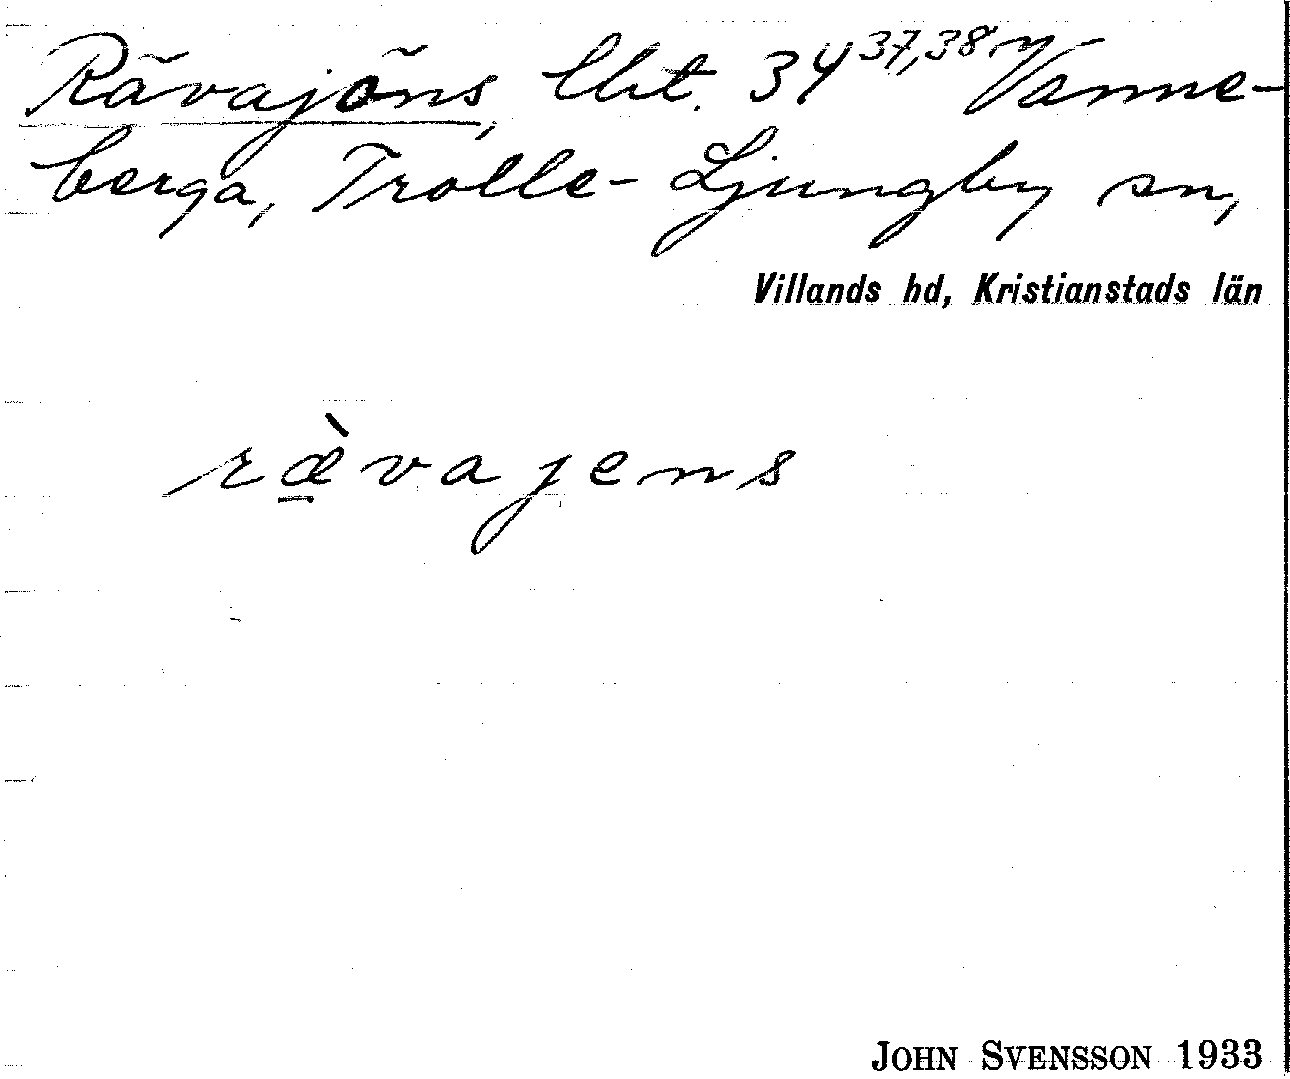 Rävajöns, lht. 34 37,38 Vanne-
berga, Trolle-Ljungby sn,
Villands hd, Kristianstads län
ræ̀vajens
JOHN SVENSSON 1933